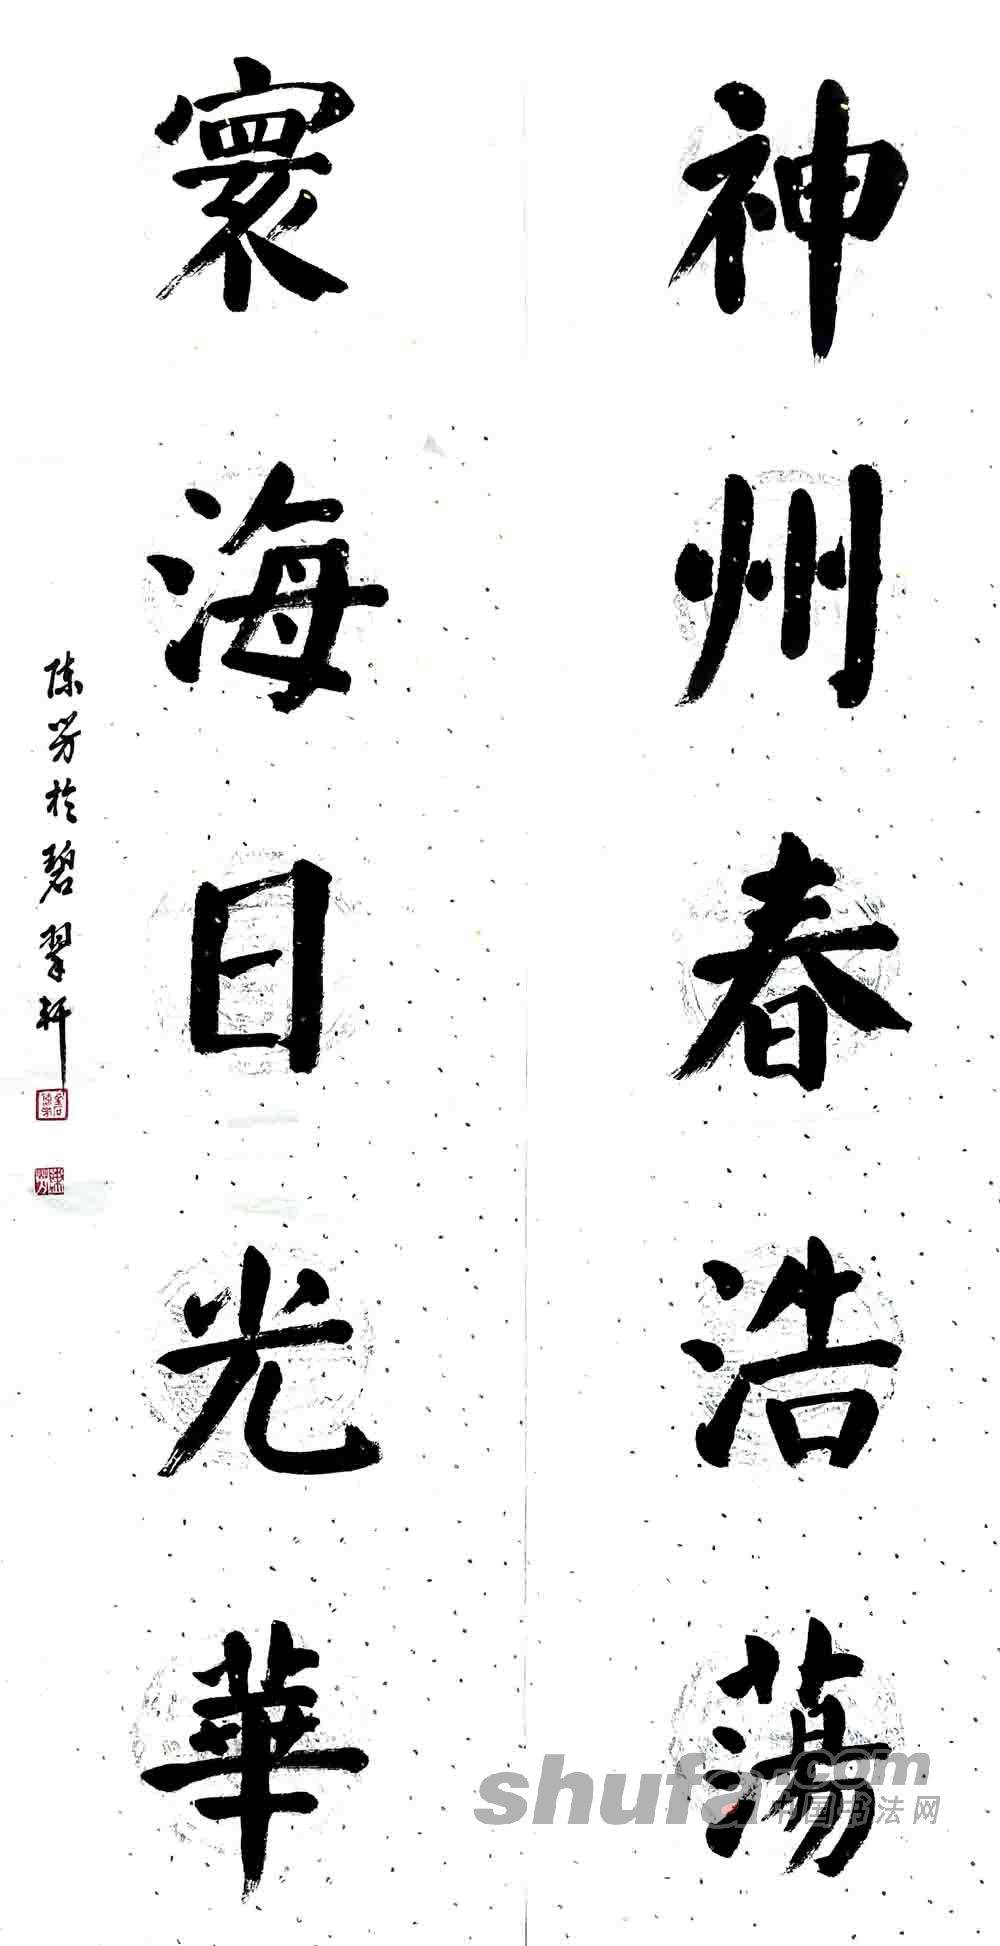 神州春浩蕩
寰海日光華
陈芳於碧翠軒
shufa.com
中国书法网